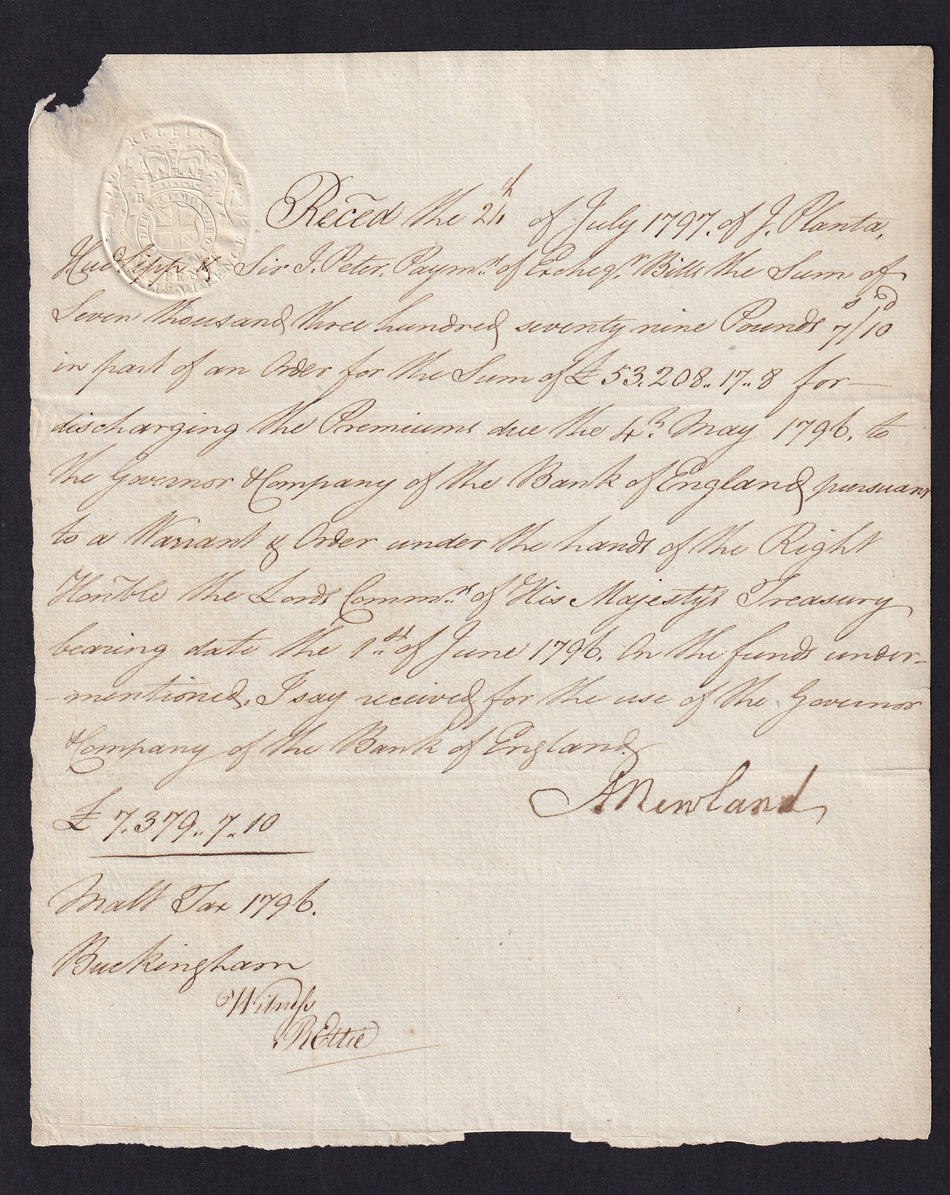 RECEIPT
Reced the 24th of July 1797. of J. Planta,
Hue Sipps & Sir J. Peter. Paymrs of Excheqr Bills the Sum of
Seven thousand three hundred seventy nine Pounds 7s/10d
in part of an Order for the Sum of £53.208..17..8 for—
discharging the Premiums due the 4th May 1796. to
the Governor & Company of the Bank of England pursuant
to a Warrant & Order under the hands of the Right
Honble the Lords Commrs of His Majesty's Treasury
bearing date the 1st of June 1796. On the funds under-
-mentioned. I say received for the use of the Governor
& Company of the Bank of England
A Newland
£7.379..7..10
Malt Tax 1796.
Buckingham
Witness